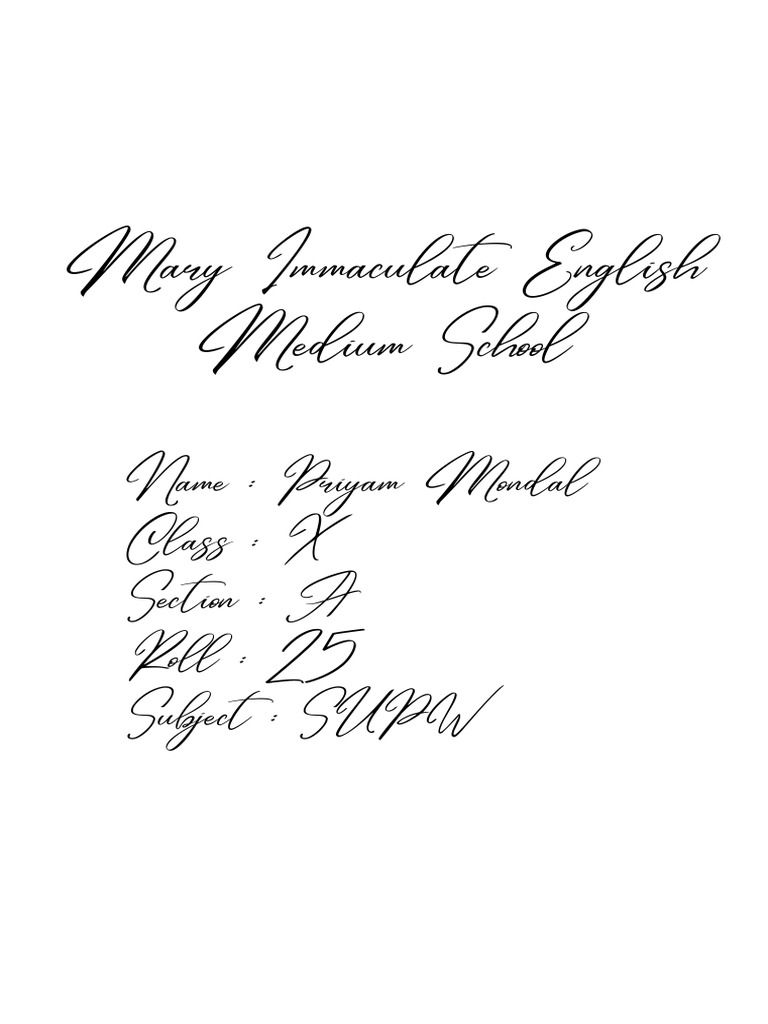 Mary Immaculate English
Medium School
Name : Priyam Mondal
Class : X
Section : A
Roll : 25
Subject : SUPW